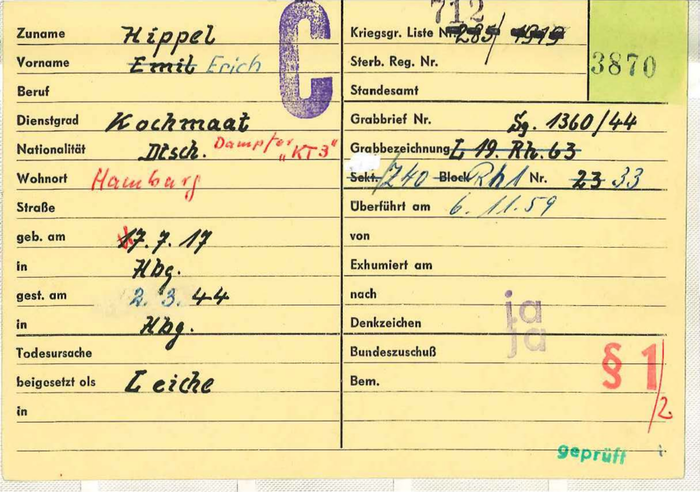 712
Zuname Hippel
Vorname Emil Erich
Beruf
Dienstgrad Kochmaat
Nationalität Dtsch. Dampfer "KT3"
Wohnort Hamburg
Straße
geb. am 17.7.17
in Hbg.
gest. am 2.3.44
in Hbg.
Todesursache
beigesetzt als Leiche
in
C
Kriegsgr. Liste Nr. 285/1919
Sterb. Reg. Nr.
Standesamt
3870
Grabbrief Nr. Sg. 1360/44
Grabbezeichnung L 19. Rh. 63
Sekt. Z40 Block Rh1 Nr. 23 33
Überführt am 6.11.59
von
Exhumiert am
nach
Denkzeichen
ja
ja
Bundeszuschuß
Bem.
§ 1/2
geprüft